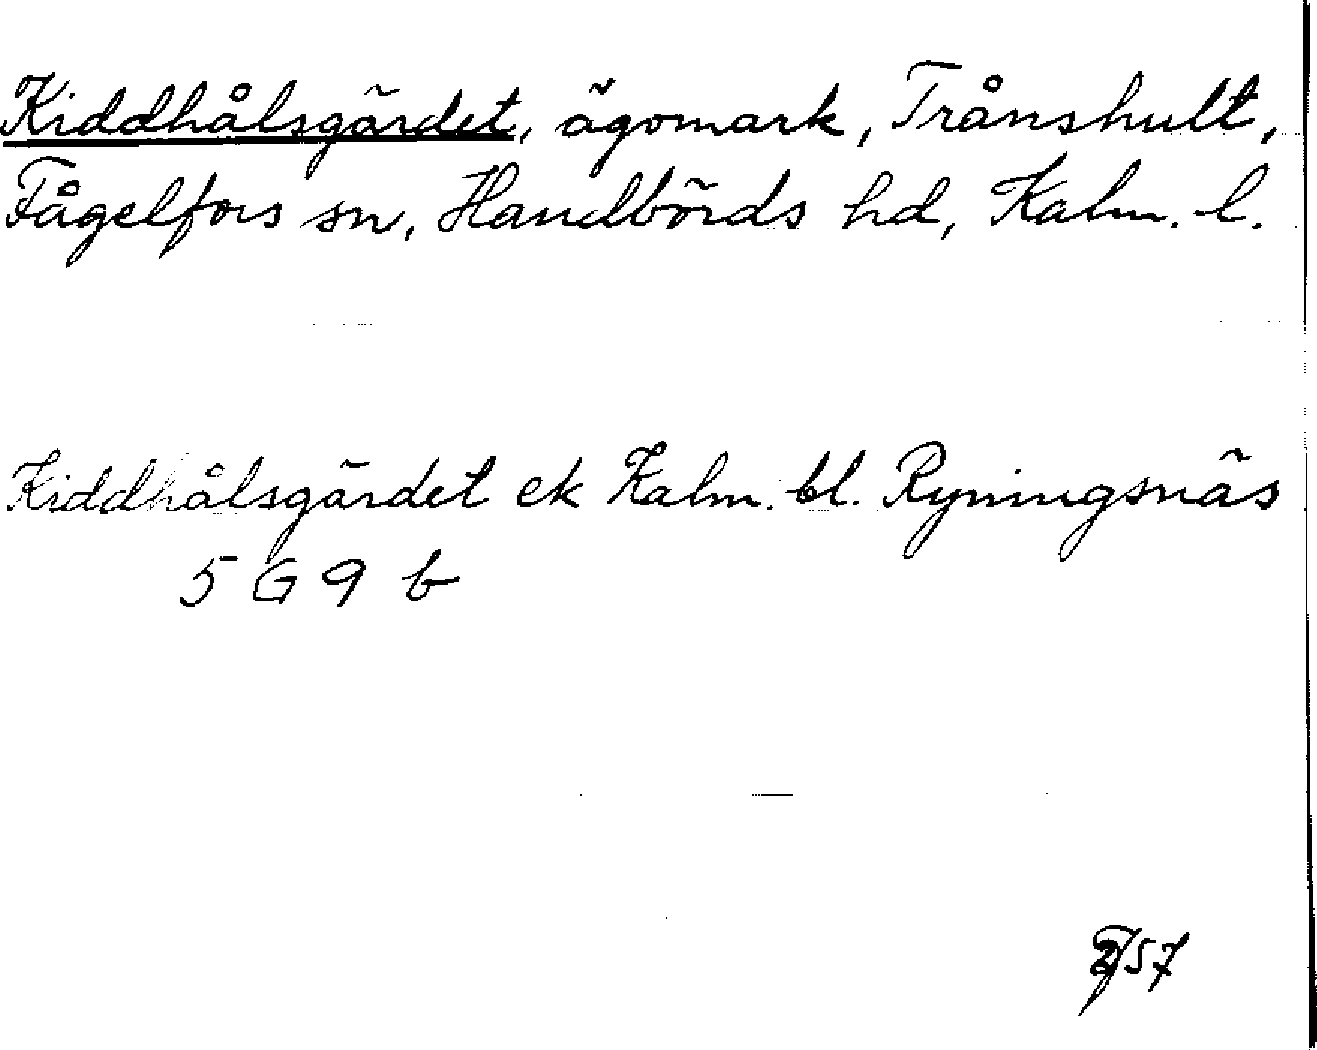 Kiddhålsgärdet, ägomark, Trånshult,
Fågelfors sn, Handbörds hd, Kalm. l.
Kiddhålsgärdet ek Kalm. bl. Ryningsnäs
5 G 9 b
57